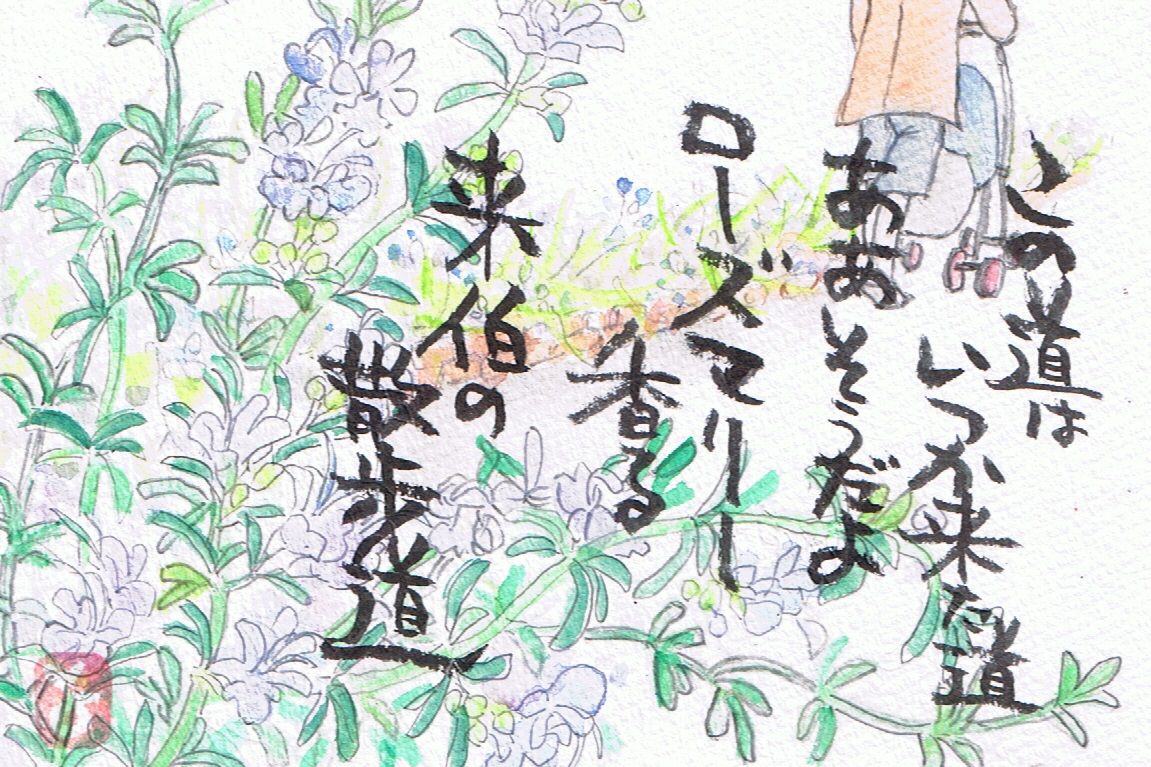 この道は
いつか来た道
ああそうだよ
ローズマリー
香る
来伯の
散歩道